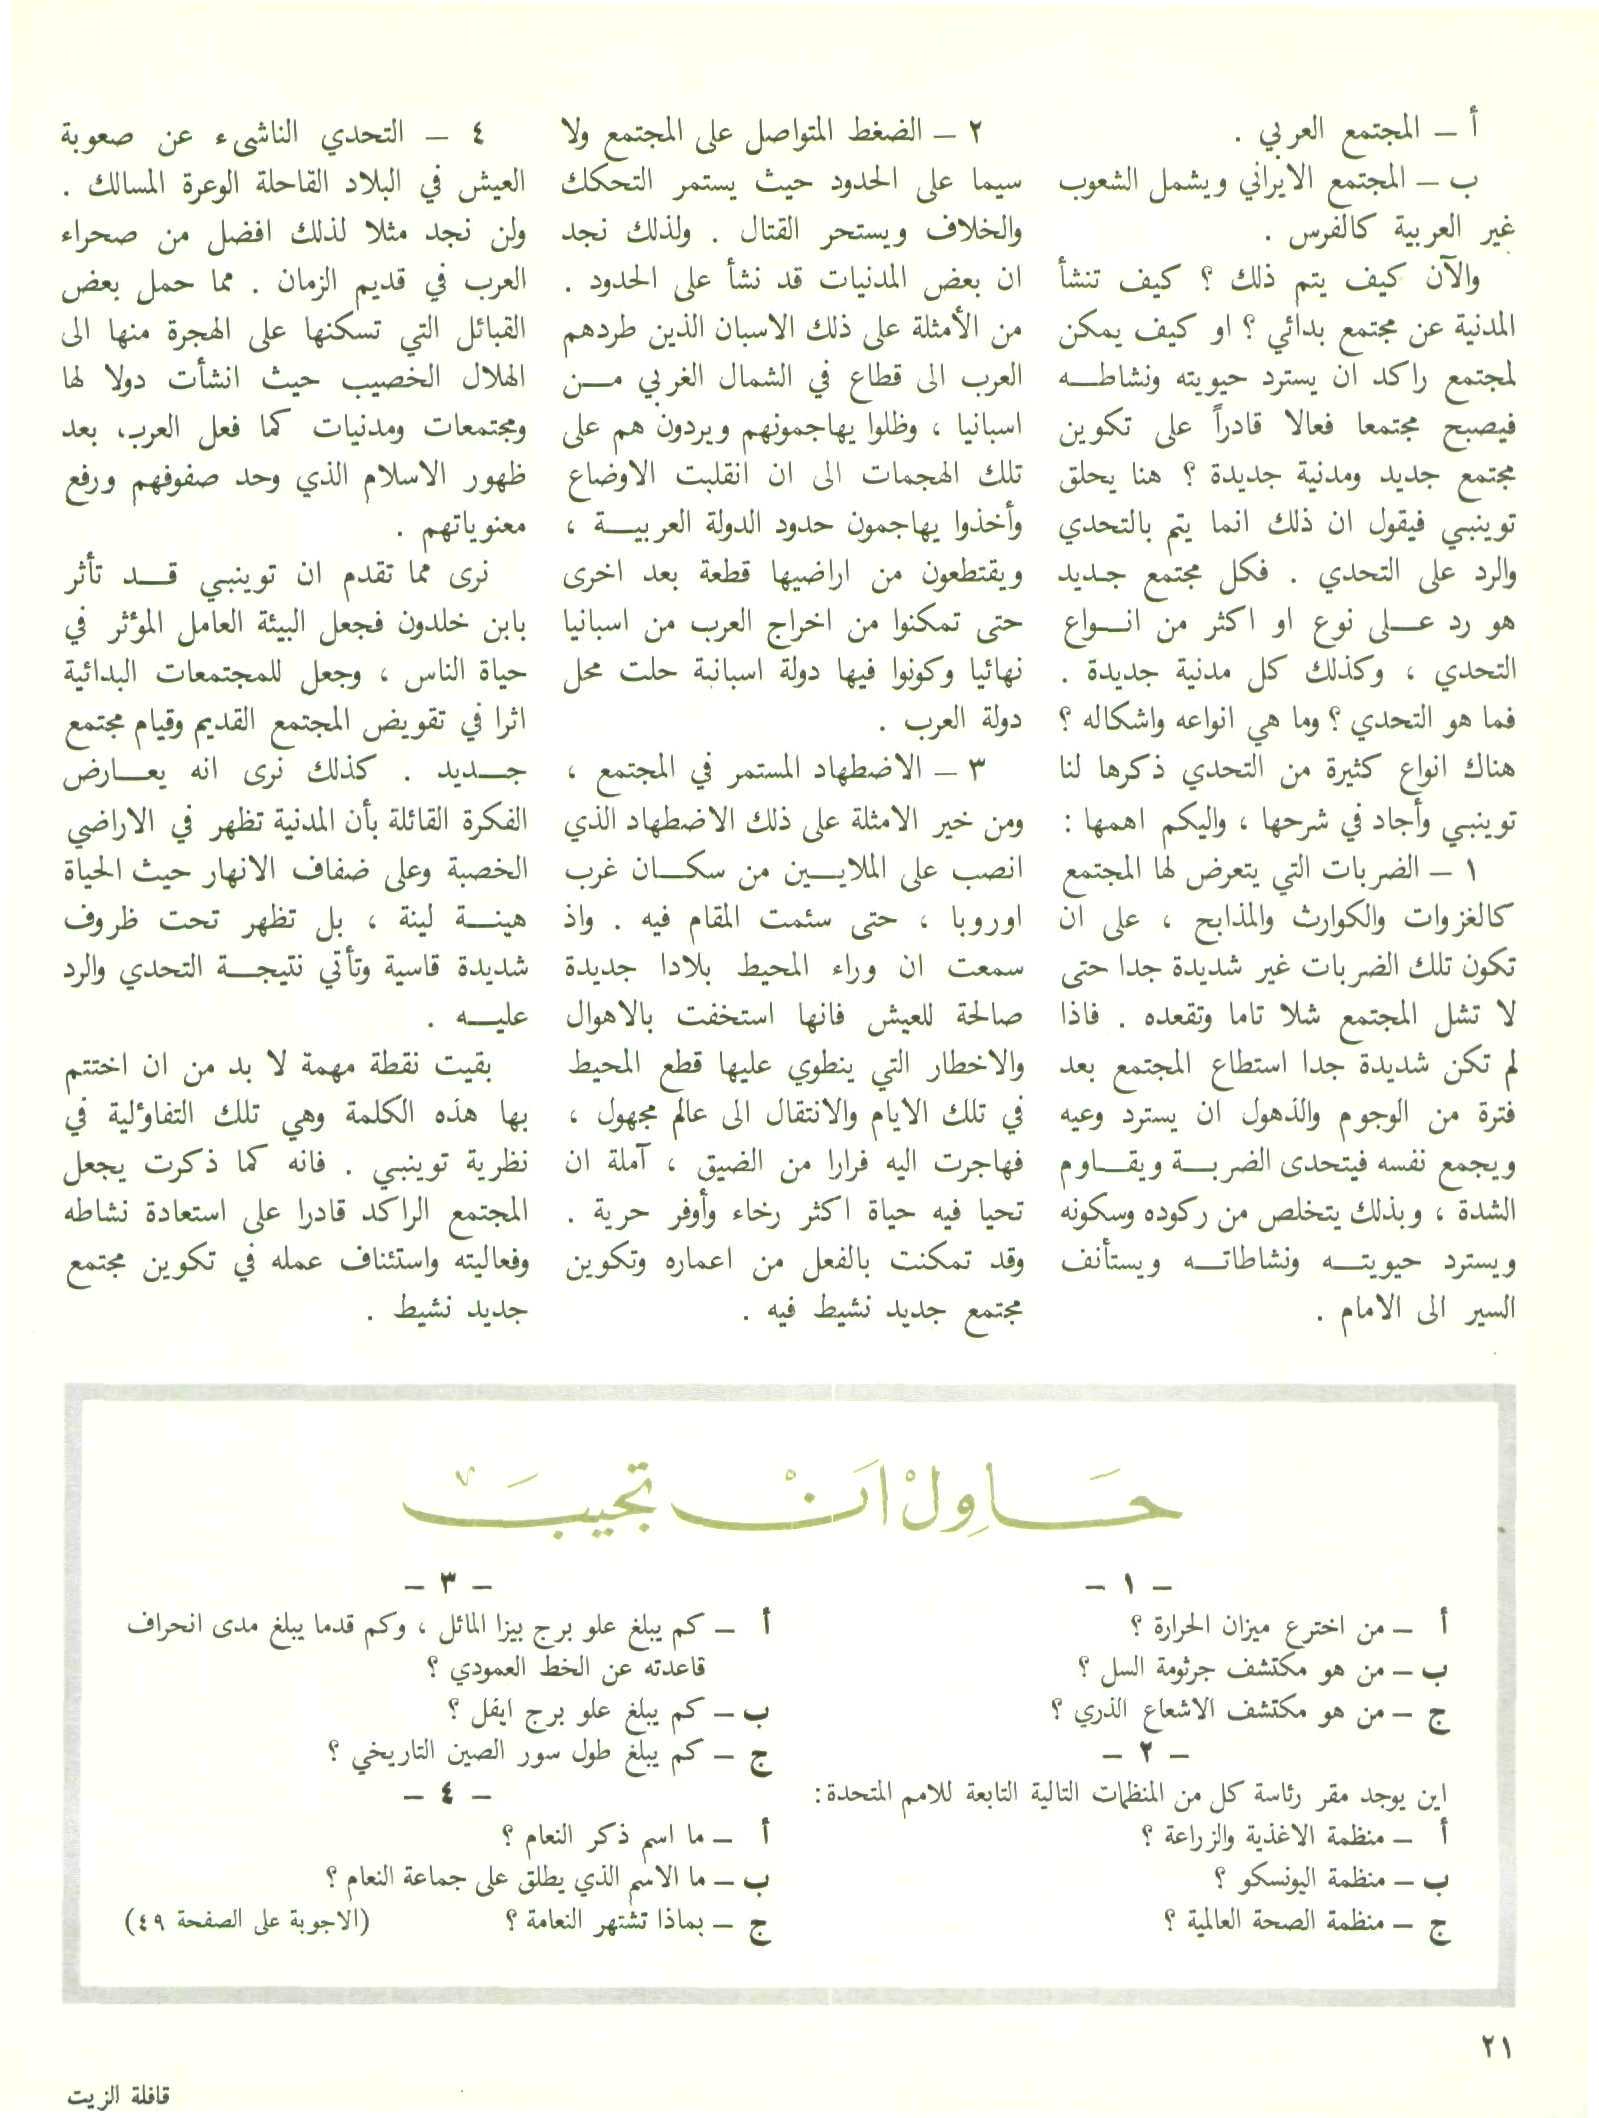 أ – المجتمع العربي .
ب – المجتمع الايراني ويشمل الشعوب
غير العربية كالفرس .
والآن كيف يتم ذلك ؟ كيف تنشأ
المدنية عن مجتمع بدائي ؟ او كيف يمكن
لمجتمع راكد ان يسترد حيويته ونشاطه
فيصبح مجتمعا فعالا قادراً على تكوين
مجتمع جديد ومدنية جديدة ؟ هنا يحلق
توينبي فيقول ان ذلك انما يتم بالتحدي
والرد على التحدي . فكل مجتمع جديد
هو رد على نوع او اكثر من انواع
التحدي ، وكذلك كل مدنية جديدة .
فما هو التحدي ؟ وما هي انواعه واشكاله ؟
هناك انواع كثيرة من التحدي ذكرها لنا
توينبي وأجاد في شرحها ، واليكم اهمها :
١ – الضربات التي يتعرض لها المجتمع
كالغزوات والكوارث والمذابح ، على ان
تكون تلك الضربات غير شديدة جدا حتى
لا تشل المجتمع شلا تاما وتقعده . فاذا
لم تكن شديدة جدا استطاع المجتمع بعد
فترة من الوجوم والذهول ان يسترد وعيه
ويجمع نفسه فيتحدى الضربة ويقاوم
الشدة ، وبذلك يتخلص من ركوده وسكونه
ويسترد حيويته ونشاطاته ويستأنف
السير الى الامام .
٢ – الضغط المتواصل على المجتمع ولا
سيما على الحدود حيث يستمر التحكك
والخلاف ويستحر القتال . ولذلك نجد
ان بعض المدنيات قد نشأ على الحدود .
من الأمثلة على ذلك الاسبان الذين طردهم
العرب الى قطاع في الشمال الغربي من
اسبانيا ، وظلوا يهاجمونهم ويردون هم على
تلك الهجمات الى ان انقلبت الاوضاع
وأخذوا يهاجمون حدود الدولة العربية ،
ويقتطعون من اراضيها قطعة بعد اخرى
حتى تمكنوا من اخراج العرب من اسبانيا
نهائيا وكونوا فيها دولة اسبانية حلت محل
دولة العرب .
٣ – الاضطهاد المستمر في المجتمع ،
ومن خير الامثلة على ذلك الاضطهاد الذي
انصب على الملايين من سكان غرب
اوروبا ، حتى سئمت المقام فيه . واذ
سمعت ان وراء المحيط بلادا جديدة
صالحة للعيش فانها استخفت بالاهوال
والاخطار التي ينطوي عليها قطع المحيط
في تلك الايام والانتقال الى عالم مجهول ،
فهاجرت اليه فرارا من الضيق ، آملة ان
تحيا فيه حياة اكثر رخاء وأوفر حرية .
وقد تمكنت بالفعل من اعماره وتكوين
مجتمع جديد نشيط فيه .
٤ – التحدي الناشىء عن صعوبة
العيش في البلاد القاحلة الوعرة المسالك .
ولن نجد مثلا لذلك افضل من صحراء
العرب في قديم الزمان . مما حمل بعض
القبائل التي تسكنها على الهجرة منها الى
الهلال الخصيب حيث انشأت دولا لها
ومجتمعات ومدنيات كما فعل العرب، بعد
ظهور الاسلام الذي وحد صفوفهم ورفع
معنوياتهم .
نرى مما تقدم ان توينبي قد تأثر
بابن خلدون فجعل البيئة العامل المؤثر في
حياة الناس ، وجعل للمجتمعات البدائية
اثرا في تقويض المجتمع القديم وقيام مجتمع
جديد . كذلك نرى انه يعارض
الفكرة القائلة بأن المدنية تظهر في الاراضي
الخصبة وعلى ضفاف الانهار حيث الحياة
هينة لينة ، بل تظهر تحت ظروف
شديدة قاسية وتأتي نتيجة التحدي والرد
عليه .
بقيت نقطة مهمة لا بد من ان اختتم
بها هذه الكلمة وهي تلك التفاؤلية في
نظرية توينبي . فانه كما ذكرت يجعل
المجتمع الراكد قادرا على استعادة نشاطه
وفعاليته واستئناف عمله في تكوين مجتمع
جديد نشيط .
حَاوِلْ اَنْ تجيبَ
– ١ –
أ – من اخترع ميزان الحرارة ؟
ب – من هو مكتشف جرثومة السل ؟
ج – من هو مكتشف الاشعاع الذري ؟
– ٢ –
اين يوجد مقر رئاسة كل من المنظمات التالية التابعة للامم المتحدة:
أ – منظمة الاغذية والزراعة ؟
ب – منظمة اليونسكو ؟
ج – منظمة الصحة العالمية ؟
– ٣ –
أ – كم يبلغ علو برج بيزا المائل ، وكم قدما يبلغ مدى انحراف
قاعدته عن الخط العمودي ؟
ب – كم يبلغ علو برج ايفل ؟
ج – كم يبلغ طول سور الصين التاريخي ؟
– ٤ –
أ – ما اسم ذكر النعام ؟
ب – ما الاسم الذي يطلق على جماعة النعام ؟
ج – بماذا تشتهر النعامة ؟ (الاجوبة على الصفحة ٤٩)
٢١
قافلة الزيت